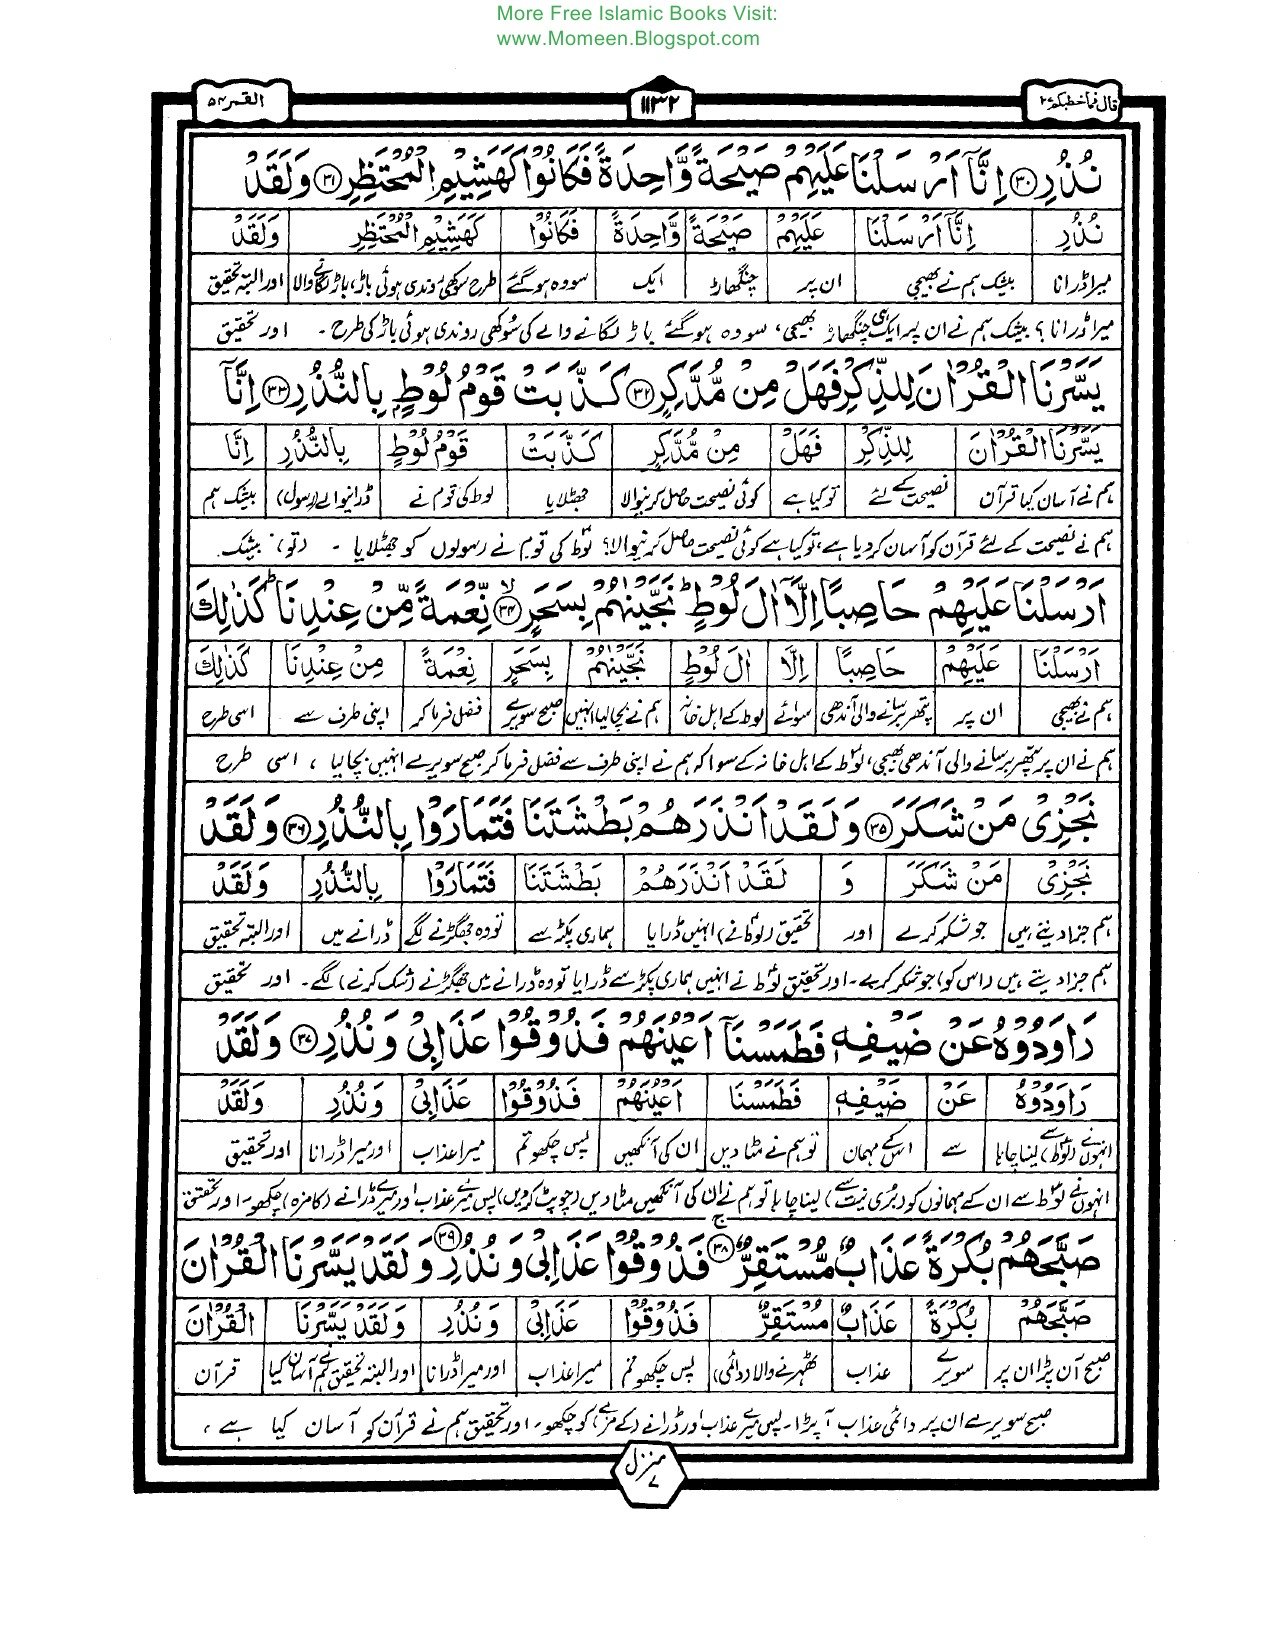 More Free Islamic Books Visit:
www.Momeen.Blogspot.com
قال فما خطبکم ۲۷
۱۱۳۲
القمر ۵۴
نُذُرِ ۝۳۰ اِنَّاۤ اَرْسَلْنَا عَلَیْهِمْ صَیْحَةً وَّاحِدَةً فَكَانُوْا كَهَشِیْمِ الْمُحْتَظِرِ ۝۳۱ وَلَقَدْ
نُذُرِ | اِنَّاۤ اَرْسَلْنَا | عَلَیْهِمْ | صَیْحَةً | وَّاحِدَةً | فَكَانُوْا | كَهَشِیْمِ الْمُحْتَظِرِ | وَلَقَدْ
میرا ڈرانا | بیشک ہم نے بھیجی | ان پر | چنگھاڑ | ایک | سو وہ ہوگئے | طرح سوکھی روندی ہوئی باڑ، باڑ لگانے والا | اور البتہ تحقیق
میرا ڈرانا ؟ بیشک ہم نے ان پر ایک ہی چنگھاڑ بھیجی، سو وہ ہو گئے باڑ لگانے والے کی سُوکھی روندی ہوئی باڑ کی طرح ۔ اور تحقیق
یَسَّرْنَا الْقُرْاٰنَ لِلذِّكْرِ فَهَلْ مِنْ مُّدَّكِرٍ ۝۳۲ كَذَّبَتْ قَوْمُ لُوْطٍ بِالنُّذُرِ ۝۳۳ اِنَّاۤ
یَسَّرْنَا الْقُرْاٰنَ | لِلذِّكْرِ | فَهَلْ | مِنْ مُّدَّكِرٍ | كَذَّبَتْ | قَوْمُ لُوْطٍ | بِالنُّذُرِ | اِنَّا
ہم نے آسان کیا قرآن | نصیحت کے لئے | تو کیا ہے | کوئی نصیحت حاصل کرنیوالا | جھٹلایا | لوط کی قوم نے | ڈرانیوالے (رسول) | بیشک ہم
ہم نے نصیحت کے لئے قرآن کو آسان کر دیا ہے، تو کیا ہے کوئی نصیحت حاصل کرنیوالا؟ لوطؑ کی قوم نے رسولوں کو جھٹلایا ۔ (تو) بیشک
اَرْسَلْنَا عَلَیْهِمْ حَاصِبًا اِلَّاۤ اٰلَ لُوْطٍ ؕ نَجَّیْنٰهُمْ بِسَحَرٍ ۝۳۴ۙ نِّعْمَةً مِّنْ عِنْدِنَا ؕ كَذٰلِكَ
اَرْسَلْنَا | عَلَیْهِمْ | حَاصِبًا | اِلَّا | اٰلَ لُوْطٍ | نَجَّیْنٰهُمْ | بِسَحَرٍ | نِعْمَةً | مِنْ عِنْدِنَا | كَذٰلِكَ
ہم نے بھیجی | ان پر | پتھر برسانے والی آندھی | سوائے | لوط کے اہل خانہ | ہم نے بچا لیا انہیں | صبح سویرے | فضل فرما کر | اپنی طرف سے | اسی طرح
ہم نے ان پر پتھر برسانے والی آندھی بھیجی، لوطؑ کے اہل خانہ کے سوا کہ ہم نے اپنی طرف سے فضل فرما کر صبح سویرے انہیں بچا لیا ، اسی طرح
نَجْزِیْ مَنْ شَكَرَ ۝۳۵ وَلَقَدْ اَنْذَرَهُمْ بَطْشَتَنَا فَتَمَارَوْا بِالنُّذُرِ ۝۳۶ وَلَقَدْ
نَجْزِیْ | مَنْ شَكَرَ | وَ | لَقَدْ اَنْذَرَهُمْ | بَطْشَتَنَا | فَتَمَارَوْا | بِالنُّذُرِ | وَلَقَدْ
ہم جزا دیتے ہیں | جو شکر کرے | اور | تحقیق (لوطؑ نے) انہیں ڈرایا | ہماری پکڑ سے | تو وہ جھگڑنے لگے | ڈرانے میں | اور البتہ تحقیق
ہم جزا دیتے ہیں (اس کو) جو شکر کرے۔ اور تحقیق لوطؑ نے انہیں ہماری پکڑ سے ڈرایا تو وہ ڈرانے میں جھگڑنے (شک کرنے) لگے۔ اور تحقیق
رَاوَدُوْهُ عَنْ ضَیْفِهٖ فَطَمَسْنَاۤ اَعْیُنَهُمْ فَذُوْقُوْا عَذَابِیْ وَنُذُرِ ۝۳۷ وَلَقَدْ
رَاوَدُوْهُ | عَنْ | ضَیْفِهٖ | فَطَمَسْنَا | اَعْیُنَهُمْ | فَذُوْقُوْا | عَذَابِیْ | وَنُذُرِ | وَلَقَدْ
انہوں نے (لوطؑ سے) لینا چاہا | سے | اس کے مہمان | تو ہم نے مٹا دیں | ان کی آنکھیں | پس چکھو تم | میرا عذاب | اور میرا ڈرانا | اور تحقیق
انہوں نے لوطؑ سے ان کے مہمانوں کو (بُری نیت سے) لینا چاہا تو ہم نے ان کی آنکھیں مٹا دیں (چوپٹ کر دیں) پس میرے عذاب اور میرے ڈرانے (کا مزہ) چکھو۔ اور تحقیق
صَبَّحَهُمْ بُكْرَةً عَذَابٌ مُّسْتَقِرٌّ ۝۳۸ۚ فَذُوْقُوْا عَذَابِیْ وَنُذُرِ ۝۳۹ وَلَقَدْ یَسَّرْنَا الْقُرْاٰنَ
صَبَّحَهُمْ | بُكْرَةً | عَذَابٌ | مُسْتَقِرٌّ | فَذُوْقُوْا | عَذَابِیْ | وَنُذُرِ | وَلَقَدْ یَسَّرْنَا | الْقُرْاٰنَ
صبح آن پڑا ان پر | سویرے | عذاب | ٹھہرنے والا (دائمی) | پس چکھو تم | میرا عذاب | اور میرا ڈرانا | اور البتہ تحقیق ہم نے آسان کیا | قرآن
صبح سویرے ان پر دائمی عذاب آ پڑا۔ پس میرے عذاب اور ڈرانے (کے مزے) کو چکھو۔ اور تحقیق ہم نے قرآن کو آسان کیا ہے ،
منزل ۷